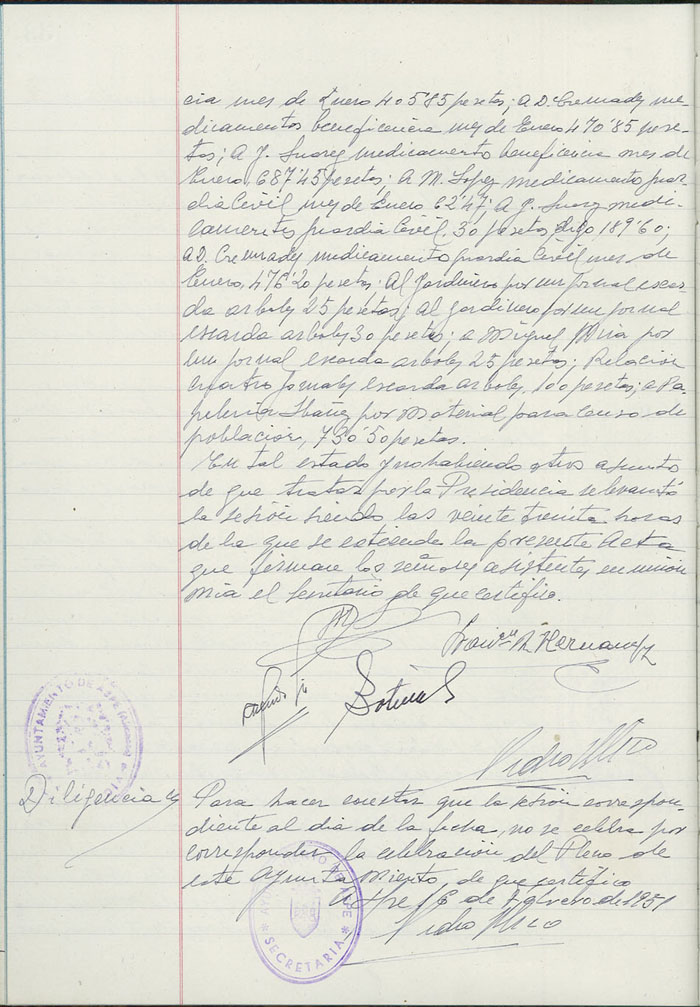 cia mes de Enero 405'85 pesetas; a D. Cremades me-
dicamentos beneficencia mes de Enero 470'85 pese-
tas; A J. Suarez medicamento beneficencia mes de
Enero, 687'45 pesetas; A M. Lopez medicamento guar-
dia Civil mes de Enero 62'47; A J. Suarez medi-
camentos guardia Civil, 30 pesetas, digo 189'60;
a D. Cremades medicamento guardia Civil mes de
Enero, 476'20 pesetas; Al jardinero por un jornal escar-
da arboles 25 pesetas; al jardinero por un jornal
escarda arboles 30 pesetas; a Miguel por
un jornal escarda arboles 25 pesetas; Relación
cuatro jornales escarda arboles, 100 pesetas; a Pa-
peleria Ibañez por Material para Censo de
población, 730'50 pesetas.
En tal estado y no habiendo otro asunto
de que tratar por la Presidencia se levantó
la sesión siendo las veinte treinta horas
de la que se extiende la presente Acta
que firman los señores asistentes en unión
mia el secretario de que certifico.
Hernandez
Botella
Pedro Mico
AYUNTAMIENTO DE ASPE (Alicante)
Diligencia
Para hacer constar que la sesión correspon-
diente al dia de la fecha, no se celebra por
corresponder la celebración del Pleno de
este Ayuntamiento, de que certifico
Aspe 16 de Febrero de 1951
Pedro Mico
SECRETARIA